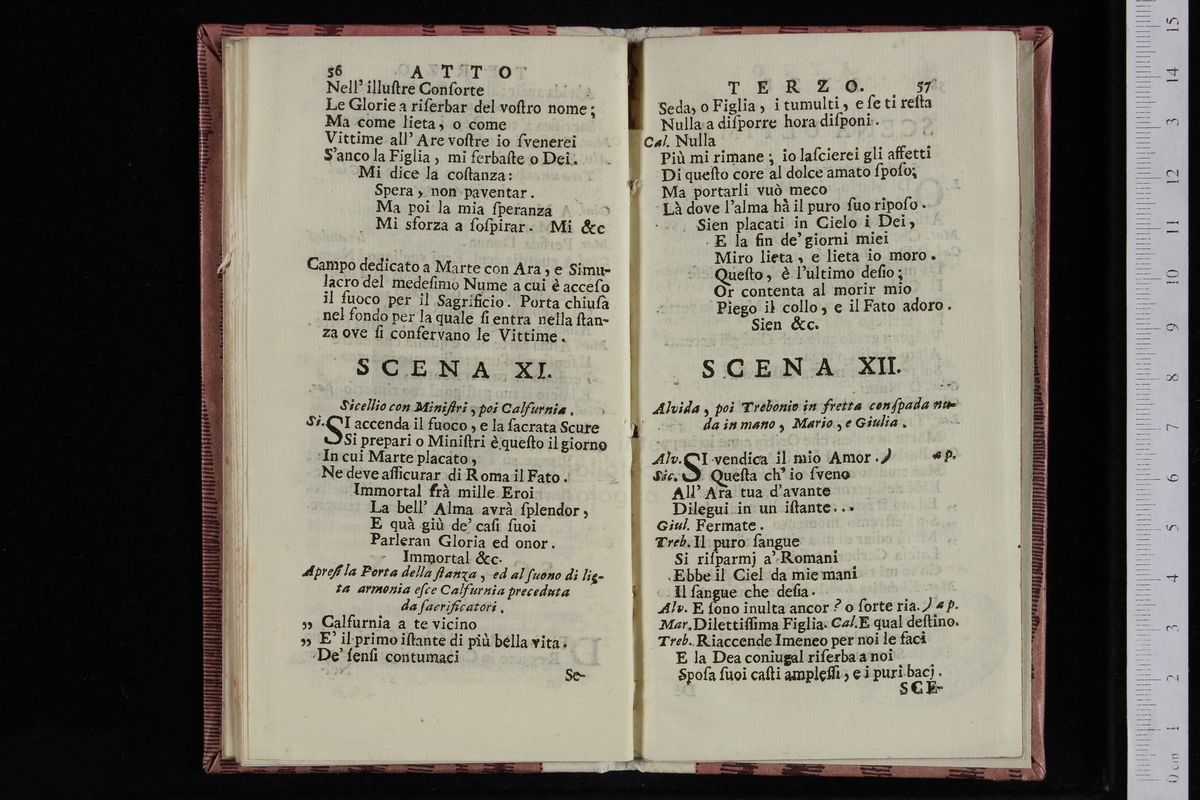 56 ATTO
Nell' illuſtre Conſorte
Le Glorie a riſerbar del voſtro nome;
Ma come lieta, o come
Vittime all' Are voſtre io ſvenerei
S'anco la Figlia, mi ſerbaſte o Dei.
Mi dice la coſtanza:
Spera, non paventar.
Ma poi la mia ſperanza
Mi sforza a ſoſpirar. Mi &c
Campo dedicato a Marte con Ara, e Simu-
lacro del medeſimo Nume a cui è acceſo
il fuoco per il Sagrificio. Porta chiuſa
nel fondo per la quale ſi entra nella ſtan-
za ove ſi conſervano le Vittime.
SCENA XI.
Sicellio con Miniſtri, poi Calfurnia.
Si. SI accenda il fuoco, e la ſacrata Scure
Si prepari o Miniſtri è queſto il giorno
In cui Marte placato,
Ne deve aſſicurar di Roma il Fato.
Immortal frà mille Eroi
La bell' Alma avrà ſplendor,
E quà giù de' caſi ſuoi
Parleran Gloria ed onor.
Immortal &c.
Apreſi la Porta della ſtanza, ed al ſuono di lig-
ta armonia eſce Calfurnia preceduta
da ſacrificatori.
„ Calfurnia a te vicino
„ E' il primo iſtante di più bella vita.
De' ſenſi contumaci
Se-
TERZO. 57
Seda, o Figlia, i tumulti, e ſe ti reſta
Nulla a diſporre hora diſponi.
Cal. Nulla
Più mi rimane; io laſcierei gli affetti
Di queſto core al dolce amato ſpoſo;
Ma portarli vuò meco
Là dove l'alma hà il puro ſuo ripoſo.
Sien placati in Cielo i Dei,
E la fin de' giorni miei
Miro lieta, e lieta io moro.
Queſto, è l'ultimo deſio;
Or contenta al morir mio
Piego il collo, e il Fato adoro.
Sien &c.
SCENA XII.
Alvida, poi Trebonio in fretta con ſpada nu-
da in mano, Mario, e Giulia.
Alv. SI vendica il mio Amor.) a p.
Sic. Queſta ch' io ſveno
All' Ara tua d'avante
Dilegui in un iſtante...
Giul. Fermate.
Treb. Il puro ſangue
Si riſparmj a' Romani
Ebbe il Ciel da mie mani
Il ſangue che deſia.
Alv. E ſono inulta ancor? o ſorte ria.) a p.
Mar. Dilettiſſima Figlia. Cal. E qual deſtino.
Treb. Riaccende Imeneo per noi le faci
E la Dea coniugal riſerba a noi
Spoſa ſuoi caſti ampleſſi, e i puri bacj.
SCE-